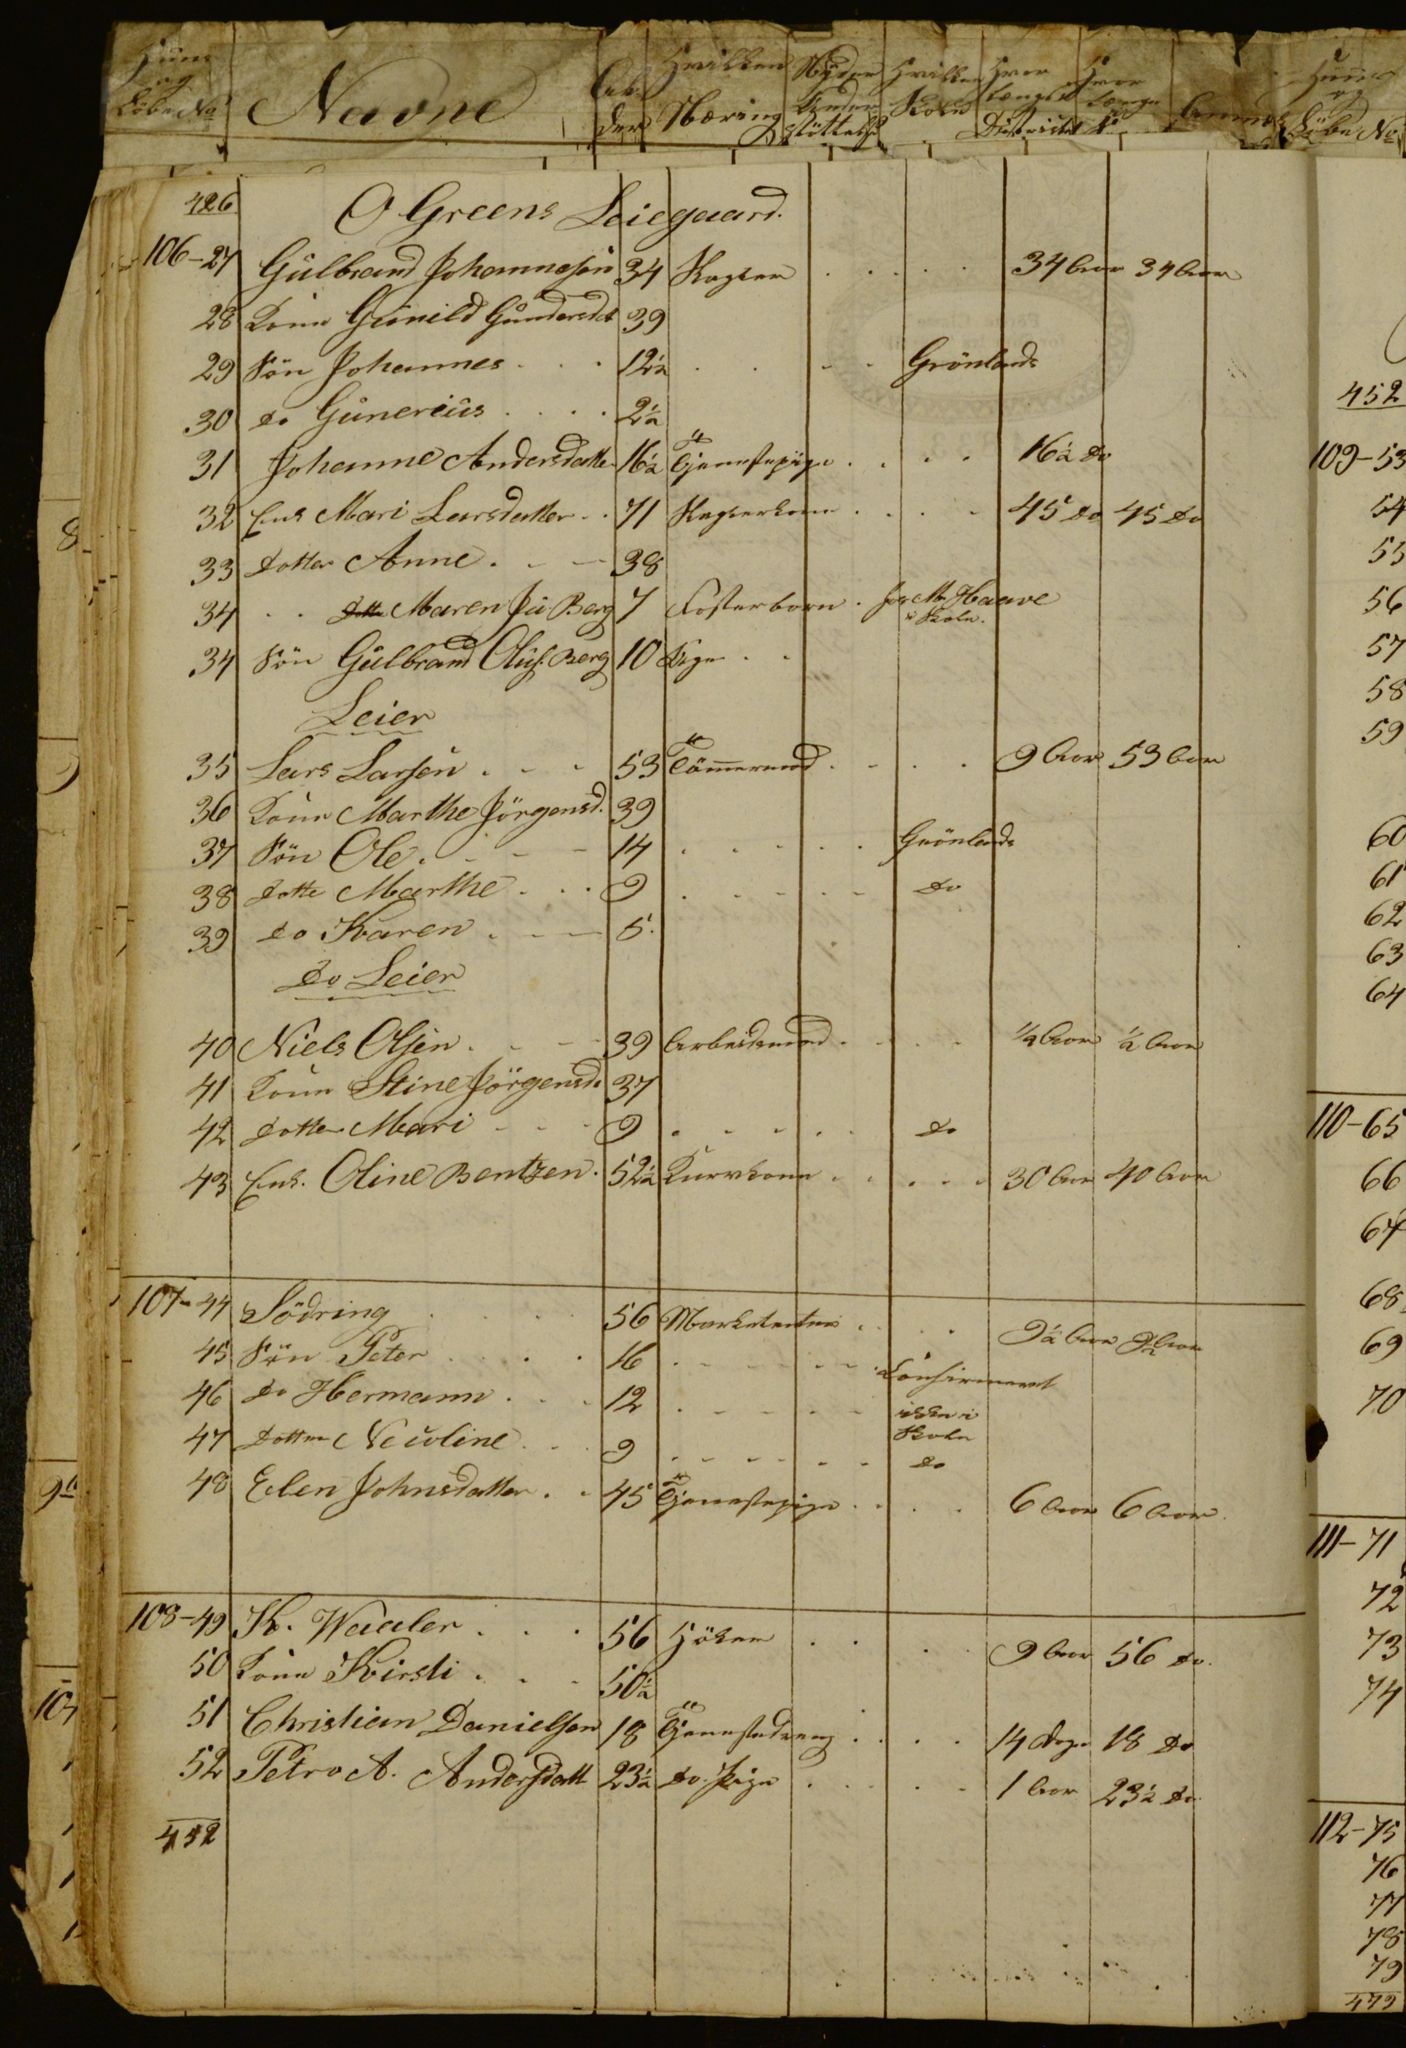 Huus og Løbe No Navne Al- der Hvilken Næring Nyder Under støttelse Hvilken Skole Hvor længe i Districtet Hvor længe Huus og Løbe No
426 O Greens Leiegaard.
106-27 Gulbrand Johannesen 34 34 Aar 34 Aar
28 Kone Gunild Gundersdt 39
29 Søn Johannes 12½ Grönlands
30 do Gunerius 2½
31 Johanne Andersdatter 16½ Tjenestepige 16½ do
32 Enk Mari Larsdatter 71 45 do 45 do
33 Datter Anne 38
34 Maren Ju Berg 7 Fosterbørn. hos M. Haave i Skole.
34 Søn Gulbrand Oluf Berg 10 Lige
Leier
35 Lars Larsen 53 Tömmermd 9 Aar 53 Aar
36 Kone Marthe Jörgensd. 39
37 Søn Ole 14 Grönlands
38 Datter Marthe 9 do
39 do Karen 5
do Leier
40 Niels Olsen 39 Arbeidsmand ½ Aar ½ Aar
41 Kone Stine Jörgensd. 37
42 Datter Mari 9 do
43 Enk. Oline Bentzen. 52½ Kurvkone 30 Aar 40 Aar
107-44 Södring 56 Marketenter 9½ Aar 9½ Aar
45 Søn Peter 16 Confirmeret
46 do Hermann 12 ikke i Skole
47 Datter Nicoline 9 do
48 Elen Johnsdatter 45 Tjenestepige 6 Aar 6 Aar
108-49 K. Waaler 56 Höker 9 Aar 56 do.
50 Kone Kirsti 50½
51 Christian Danielsen 18 Tjenestedreng 14 Dage 18 do
52 Petro A. Andersdatt 23½ do. Pige 1 Aar 23½ do
452
452
109-53
54
55
56
57
58
59
60
61
62
63
64
110-65
66
67
68
69
70
111-71
72
73
74
112-75
76
77
78
79
479